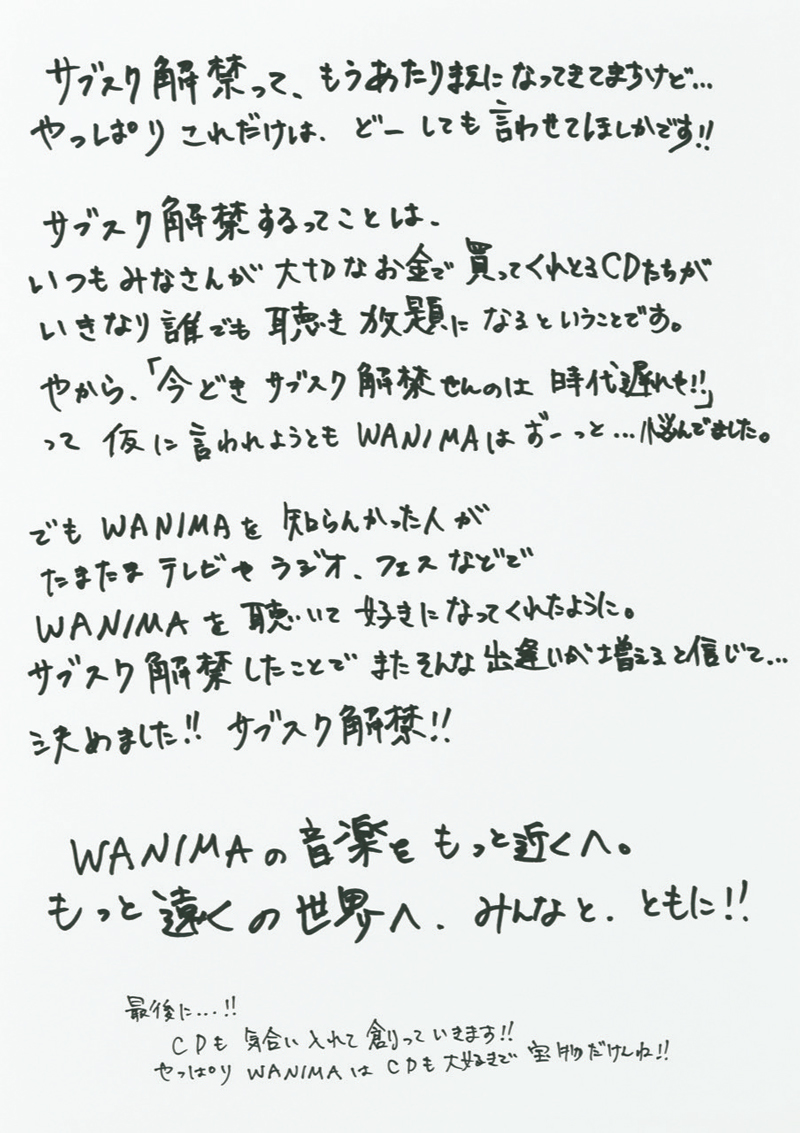 サブスク解禁って、もうあたりまえになってきてますけど…
やっぱり これだけは、どーしても 言わせてほしかです!!
サブスク解禁するってことは、
いつもみなさんが 大切なお金で 買ってくれとるCDたちが
いきなり 誰でも 聴き放題に なるということです。
やから、「今どき サブスク解禁せんのは 時代遅れや!!」
って 仮に言われようとも WANIMAはずーっと…悩んでました。
でも WANIMAを 知らんかった人が
たまたま テレビや ラジオ、フェス などで
WANIMAを 聴いて 好きになってくれたように。
サブスク解禁したことで またそんな 出逢いが増えると信じて…
決めました!! サブスク解禁!!
WANIMAの音楽を もっと近くへ。
もっと遠くの世界へ、みんなと、ともに!!
最後に…!!
CDも 気合い入れて 創っていきます!!
やっぱり WANIMAは CDも大好きで 宝物だけんね!!